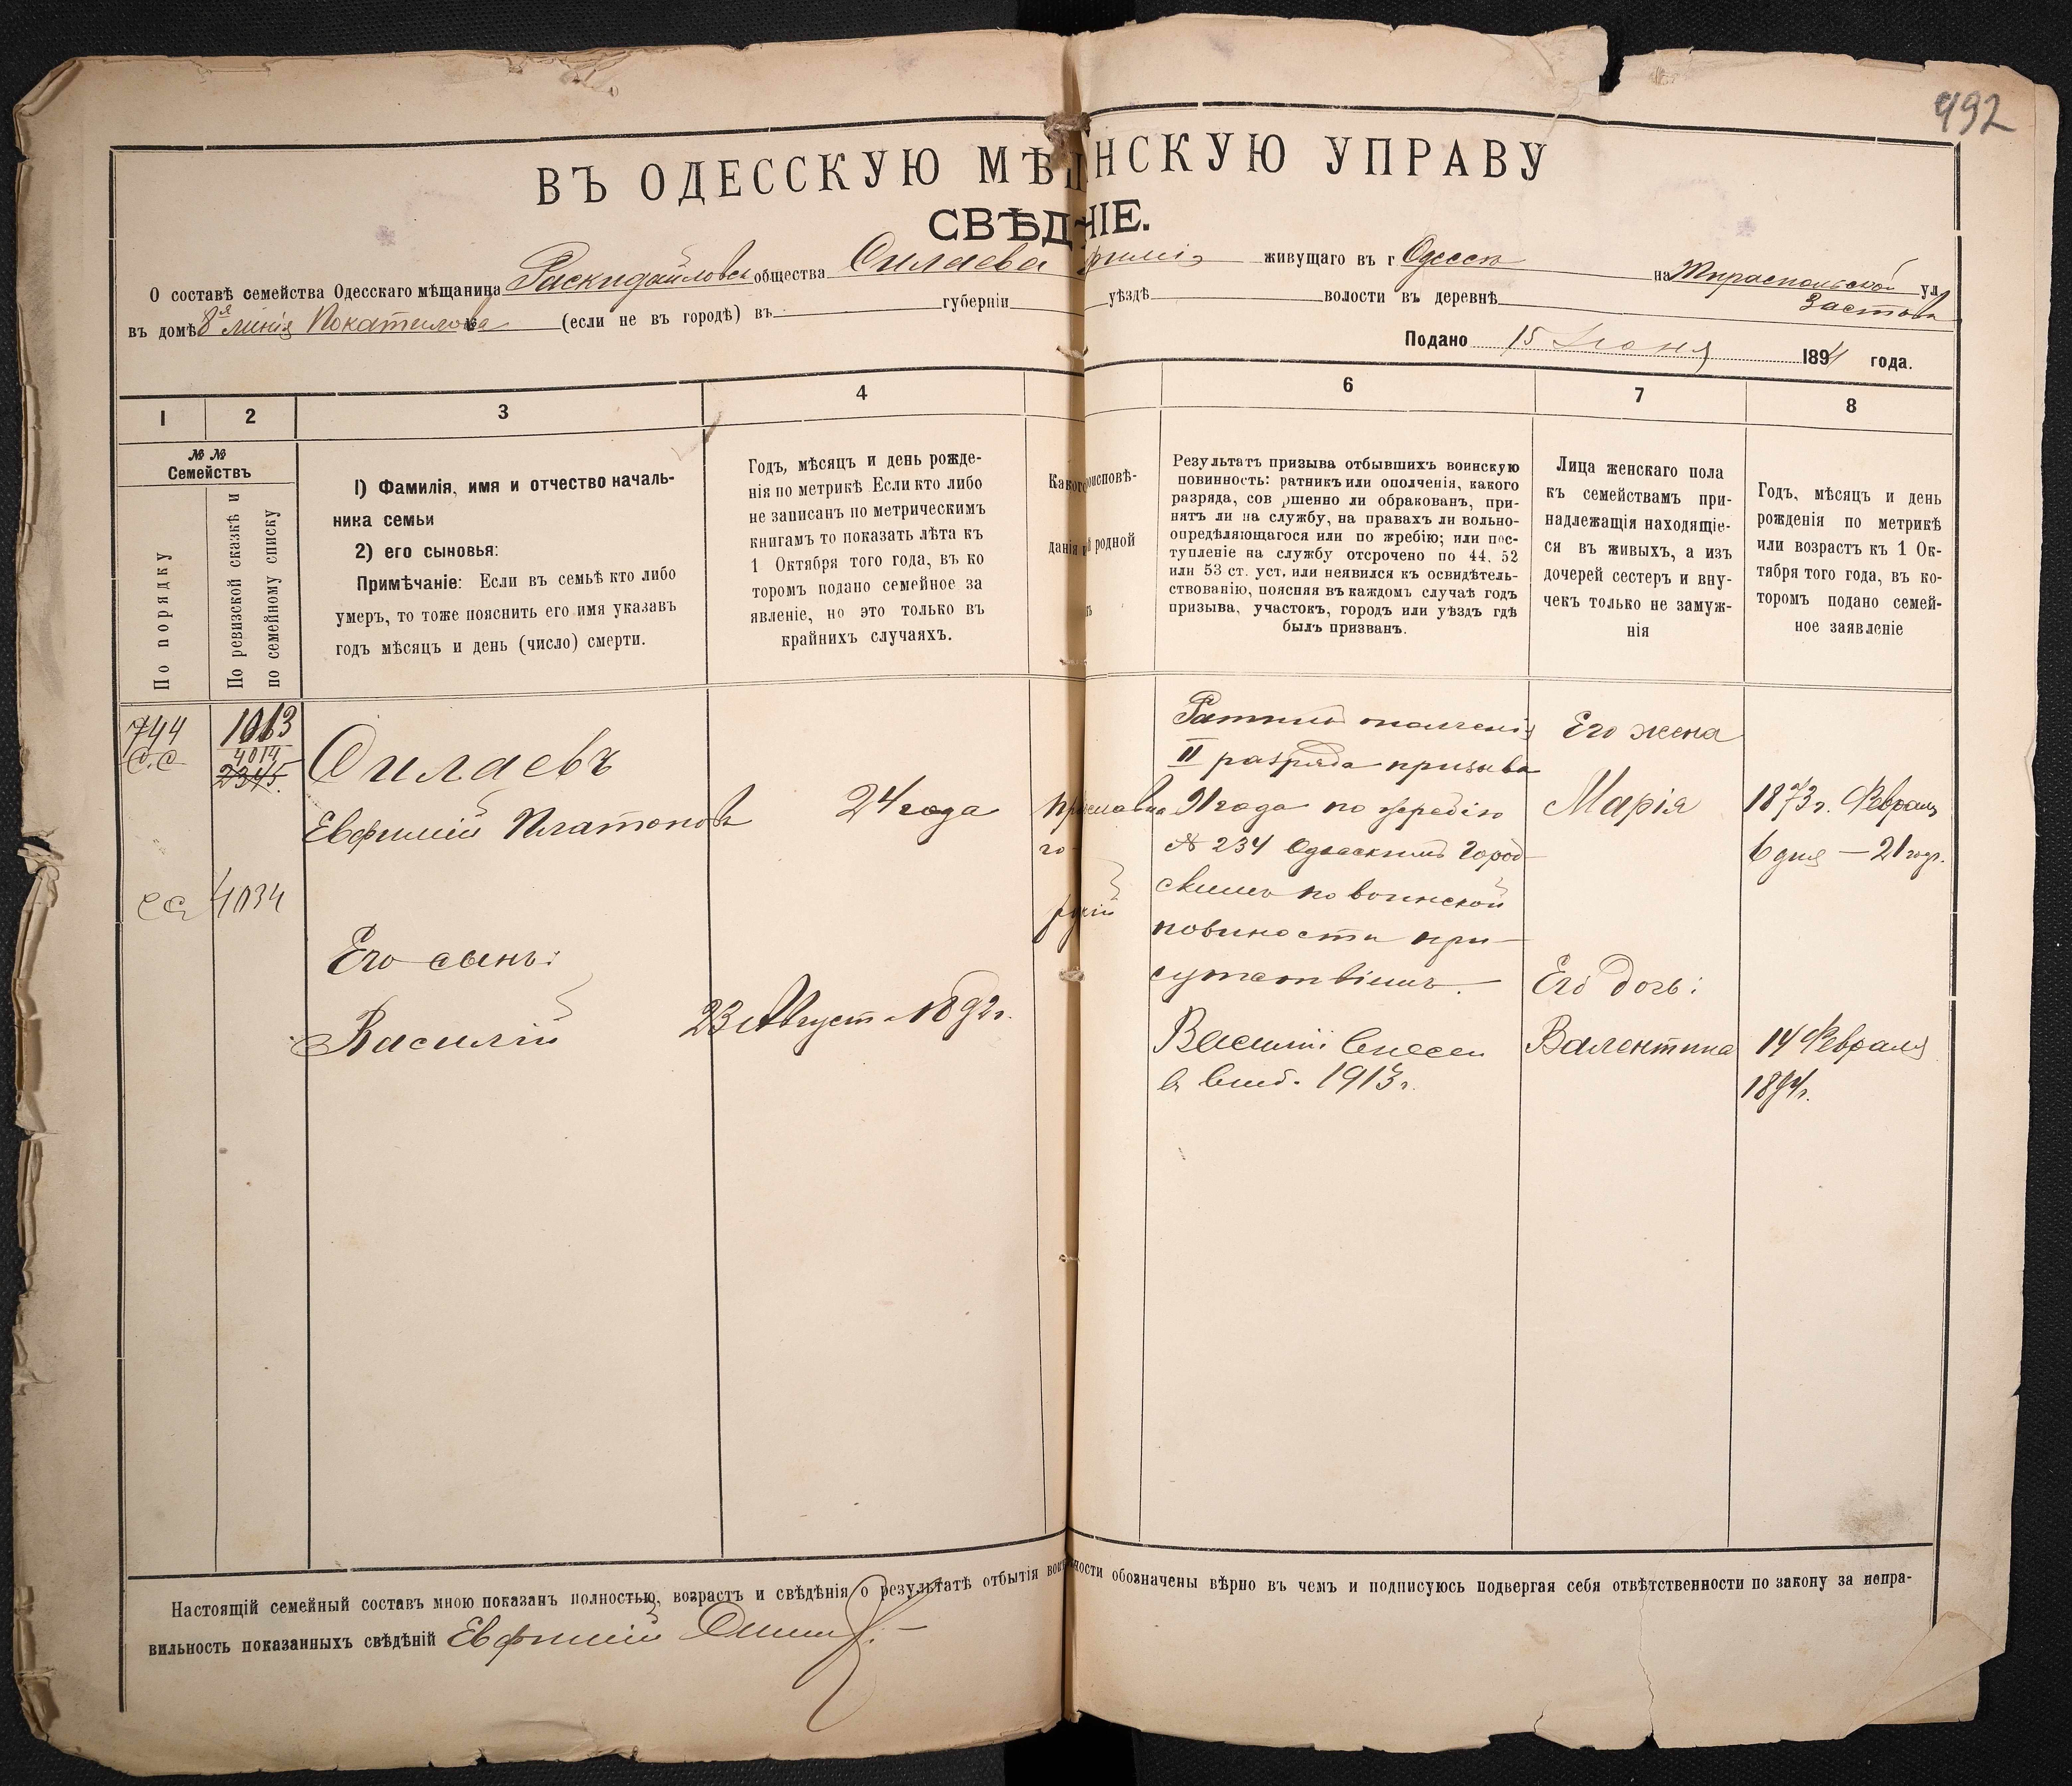 492
ВЪ ОДЕССКУЮ МѢЩАНСКУЮ УПРАВУ
СВѢДѢНІЕ.
О составѣ семейства Одесскаго мѣщанина Раскидайловск общества Силаева живущаго въ г Одессѣ на Тираспольской ул. Застава
въ домѣ 8я линія Покатилова (если не въ городѣ) въ губерніи уѣздѣ волости въ деревнѣ
Подано 15 Іюня 1894 года.
1 2 3 4 6 7 8
№№ Семействъ
По порядку
По ревизской сказкѣ и по семейному списку
1) Фамилія, имя и отчество началь-
ника семьи
2) его сыновья:
Примѣчаніе: Если въ семьѣ кто либо
умеръ, то тоже пояснить его имя указавъ
годъ мѣсяцъ и день (число) смерти.
Годъ, мѣсяцъ и день рожде-
нія по метрикѣ Если кто либо
не записанъ по метрическимъ
книгамъ то показать лѣта къ
1 Октября того года, въ ко
торомъ подано семейное за
явленіе, но это только въ
крайнихъ случаяхъ.
Какого
исповѣ-
данія
родной
Результатъ призыва отбывшихъ воинскую
повинность: ратникъ или ополченія, какого
разряда, сов ршенно ли обракованъ, при-
нятъ ли на службу, на правахъ ли вольно-
опредѣляющагося или по жребію; или пос-
тупленіе на службу отсрочено по 44. 52
или 53 ст. уст. или неявился къ освидѣтель-
ствованію, поясняя въ каждомъ случаѣ годъ
призыва, участокъ, городъ или уѣздъ гдѣ
былъ призванъ.
Лица женскаго пола
къ семействамъ при-
надлежащія находящіе-
ся въ живыхъ, а изъ
дочерей сестеръ и вну-
чекъ только не замуж-
нія
Годъ, мѣсяцъ и день
рожденія по метрикѣ
или возрастъ къ 1 Ок-
тября того года, въ ко-
торомъ подано семей-
ное заявленіе
744
С.С
1013
4014
2345.
СС 4034
Силаевъ
Евфимій Платоновъ
24 года
Ратник ополченія
II разряда призыва
91 года по жребію
№ 234 Одесскимъ Город-
скимъ по воинской
повиности при-
сутствіемъ.
Его жена
Марія
1873 г. Февраля
6 дня — 21 годъ.
Его сынъ:
Василій
23 Августа 1892 г.
Василій внесен
в 1913 г.
Его дочь:
Валентина
14 Февраля
1894 г.
Настоящій семейный составъ мною показанъ полностью, возрастъ и свѣдѣнія о результатѣ отбытія обозначены вѣрно въ чемъ и подписуюсь подвергая себя отвѣтственности по закону за непра-
вильность показанныхъ свѣдѣній Евфимій